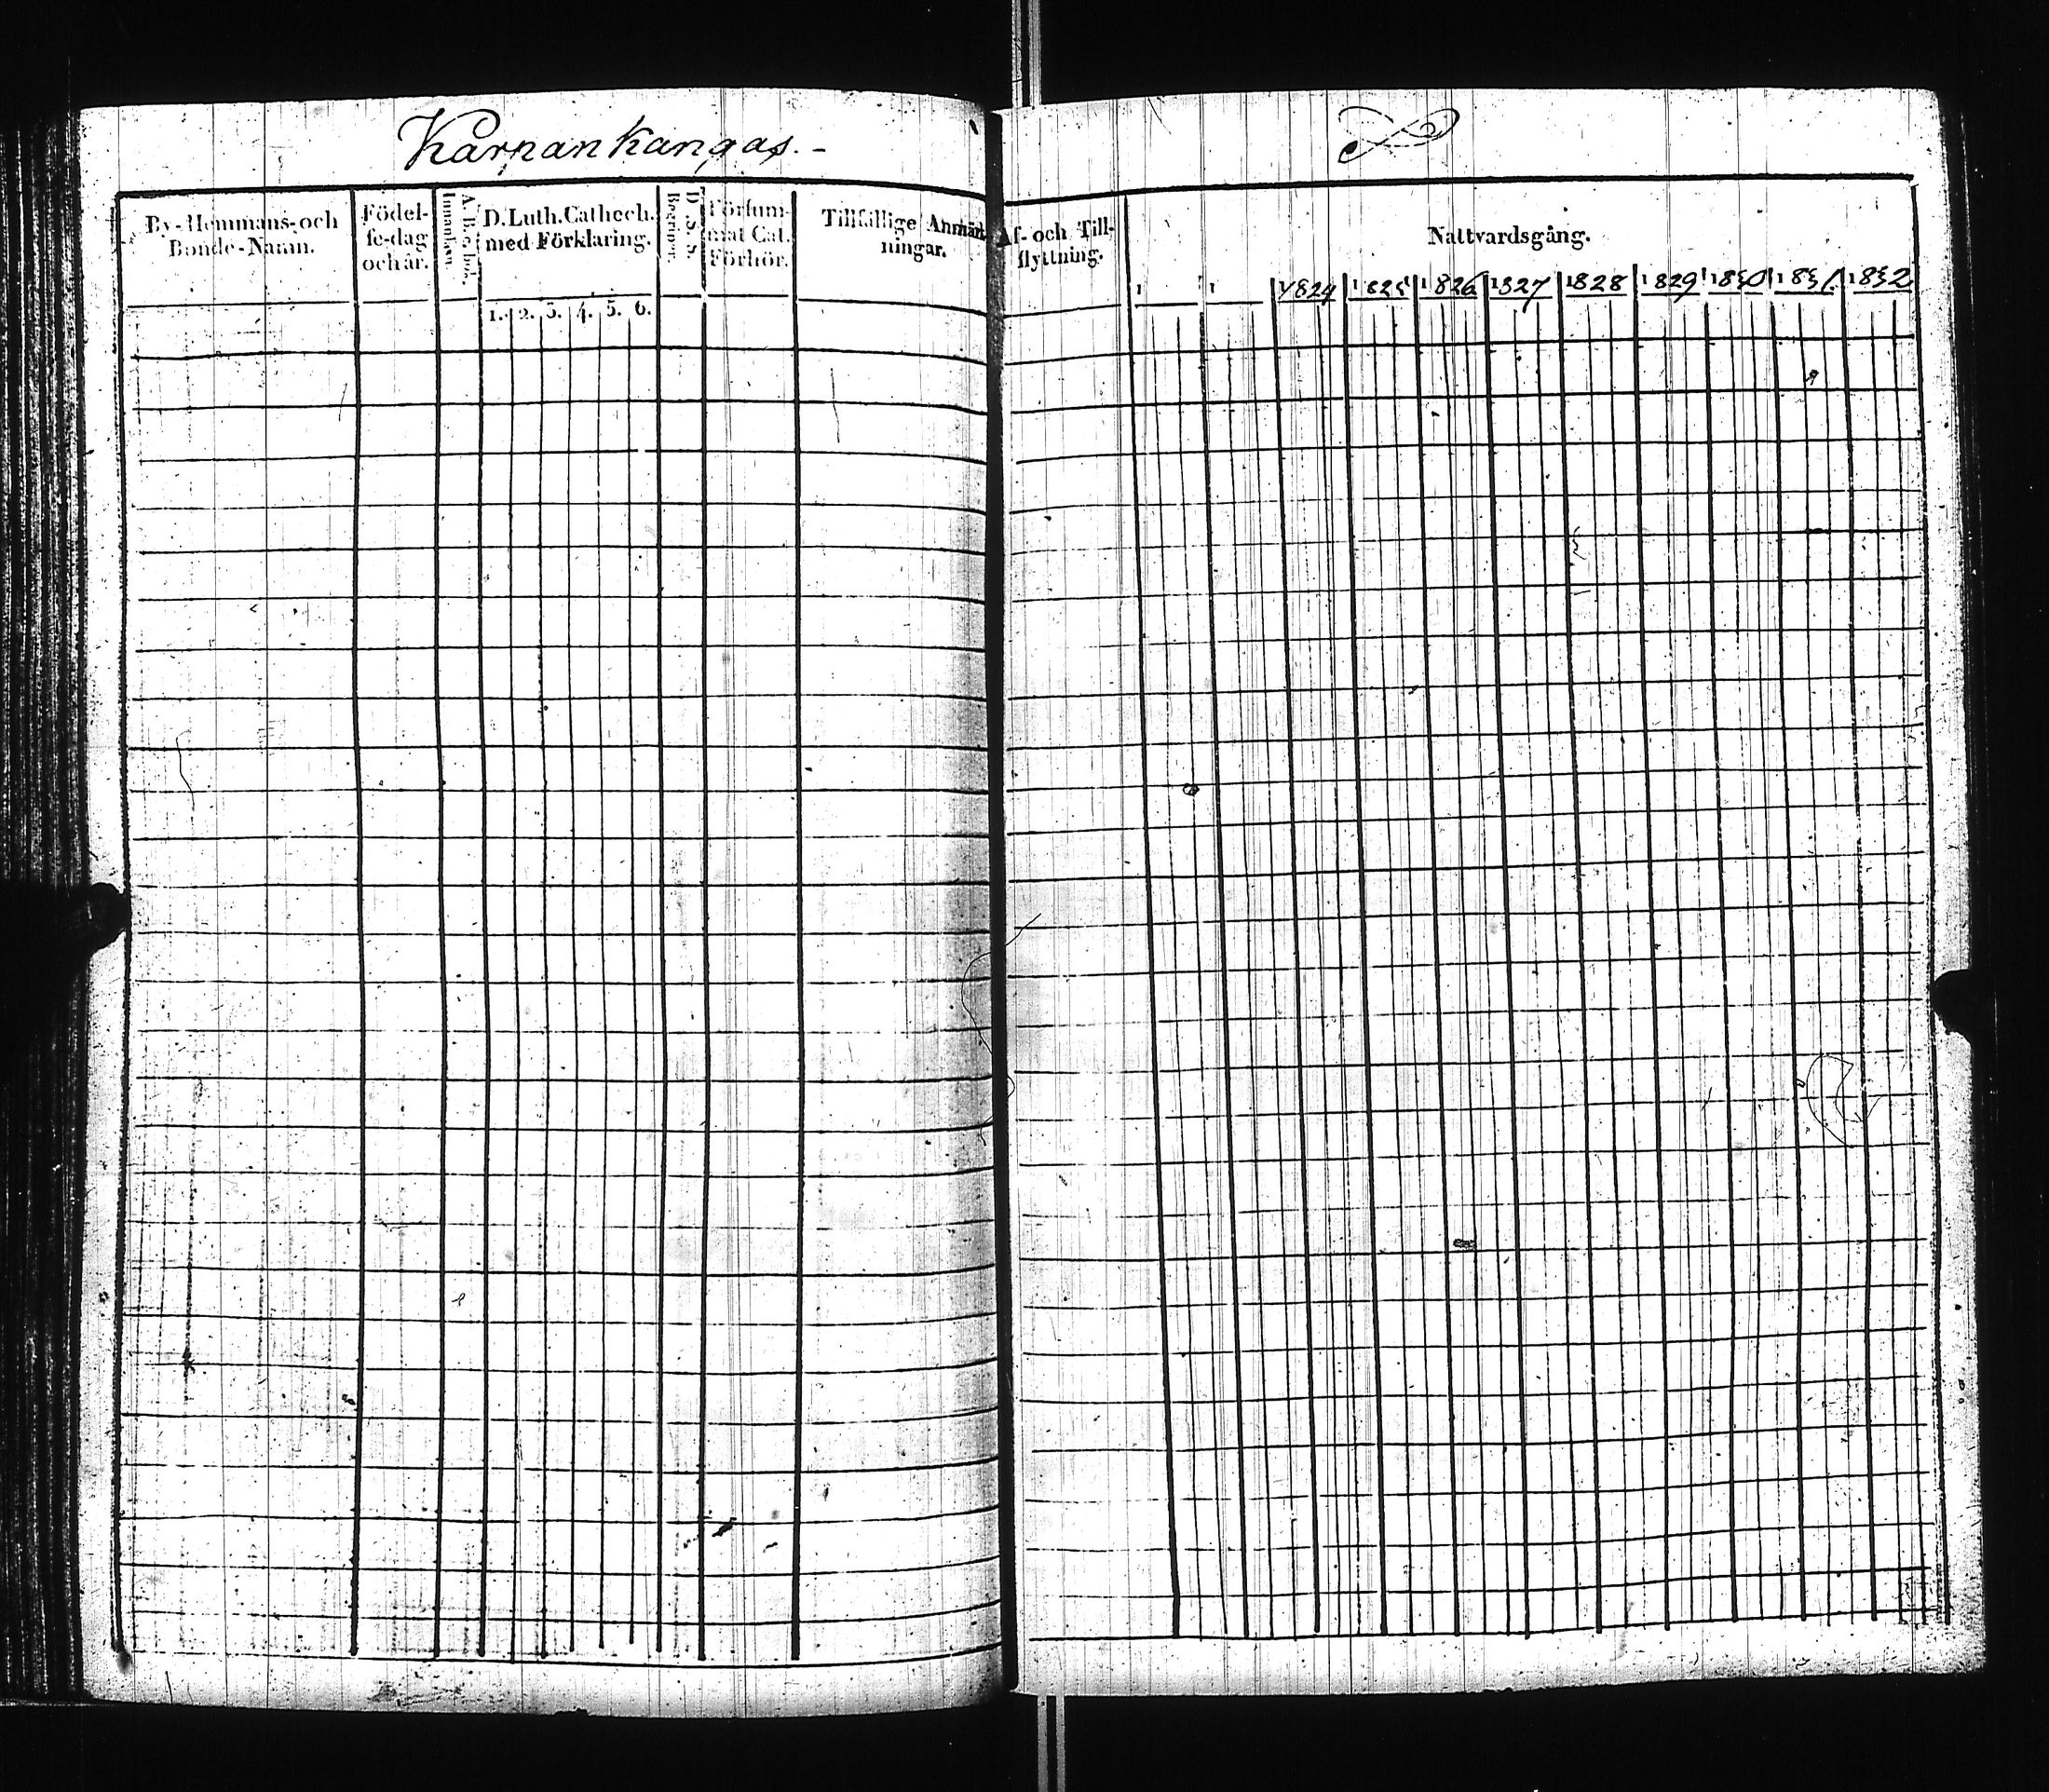 Karnankangas.-
By-Hemmans-och
Bonde-Namn.
Födel-
se-dag
och år.
A. B. c. bok.
Innanläsn.
D. Luth. Cathech.
med Förklaring.
1. 2. 3. 4. 5. 6.
D. S. S.
Begriper.
Försum-
mat Cat.
Förhör.
Tillfällige Anmärk-
ningar.
Af- och Till-
flyttning.
Nattvardsgång.
1 1 1824 1825 1826 1827 1828 1829 1830 1831 1832